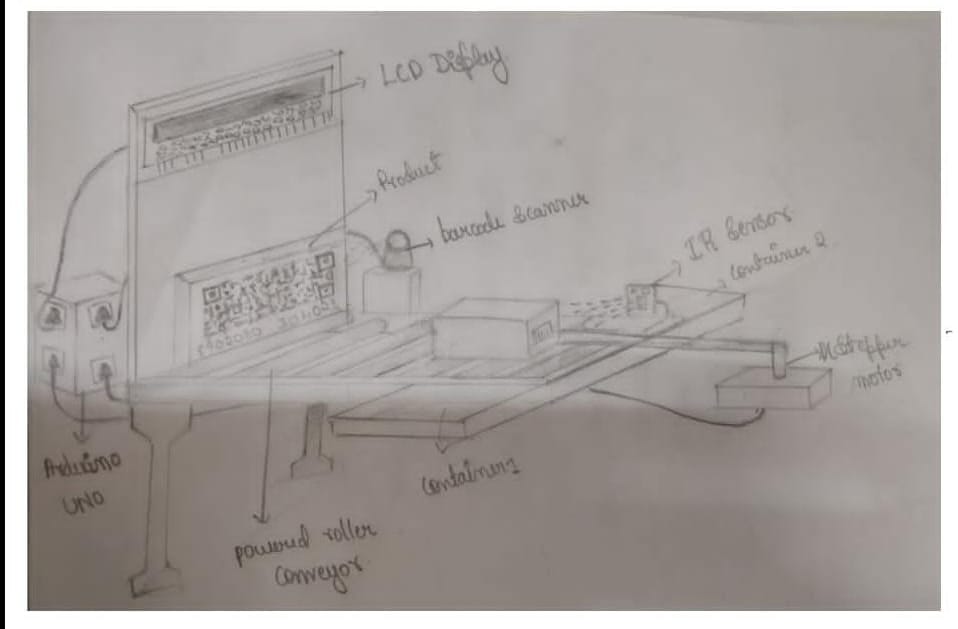 LCD Display
Product
barcode scanner
IR Sensor
Container 2
Stepper
motor
Arduino
UNO
Container 1
powered roller
conveyor